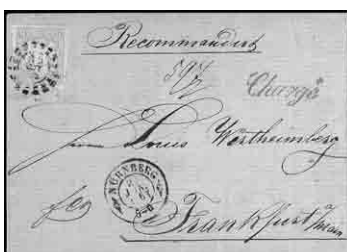 Recommandirt
597
Chargé
Herrn Louis Wertheimber
NÜRNBERG
fco
Frankfurt a/Main